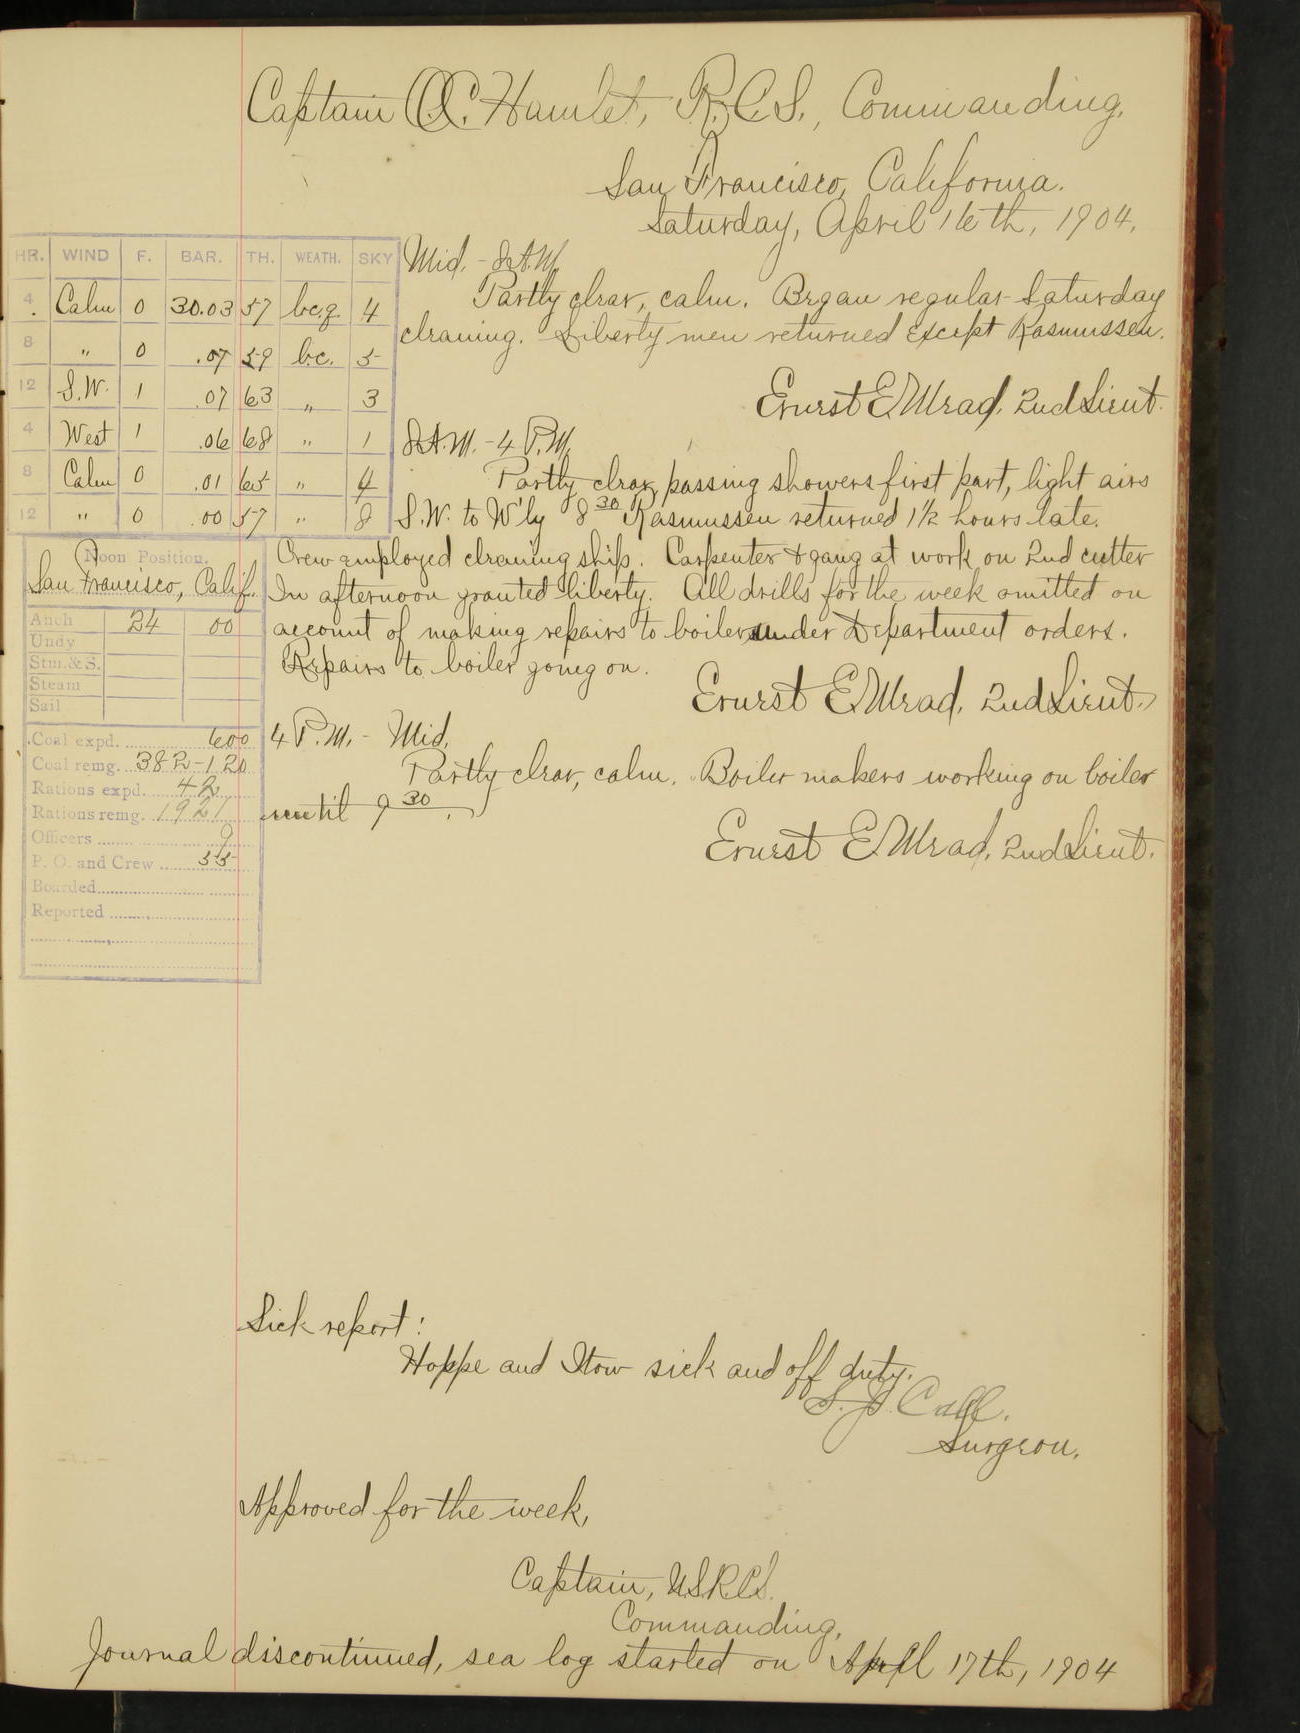 Captain O.C. Hamlet, R.C.S., Commanding.
San Francisco, California.
Saturday, April 16th, 1904.
HR. WIND F. BAR. TH. WEATH. SKY
4 Calm 0 30.03 57 b.c.q. 4
8 " 0 .07 59 b.c. 5
12 S.W. 1 .07 63 " 3
4 West 1 .06 68 " 1
8 Calm 0 .01 65 " 4
12 " 0 .00 57 " 8
Noon Position.
San Francisco, Calif.
Anch 24 00
Undy
Stm. & S.
Steam
Sail
Coal expd. 600
Coal remg. 382-120
Rations expd. 42
Rations remg. 1921
Officers 9
P. O. and Crew 55
Boarded
Reported
Mid. - 8 A.M.
Partly clear, calm. Began regular Saturday
cleaning. Liberty men returned except Rasmussen.
Ernest E. Mead, 2nd Lieut.
8 A.M. - 4 P.M.
Partly clear, passing showers first part, light airs
S.W. to W'ly 8 30 Rasmussen returned 1½ hours late.
Crew employed cleaning ship. Carpenter & gang at work on 2nd cutter
In afternoon granted liberty. All drills for the week omitted on
account of making repairs to boiler under Department orders.
Repairs to boiler going on.
Ernest E. Mead, 2nd Lieut.
4 P.M. - Mid.
Partly clear, calm. Boiler makers working on boiler
until 9 30.
Ernest E. Mead, 2nd Lieut.
Sick report:
Hoppe and Stow sick and off duty.
S. J. Call.
Surgeon.
Approved for the week,
Captain, U.S.R.C.S.
Commanding.
Journal discontinued, sea log started on April 17th, 1904